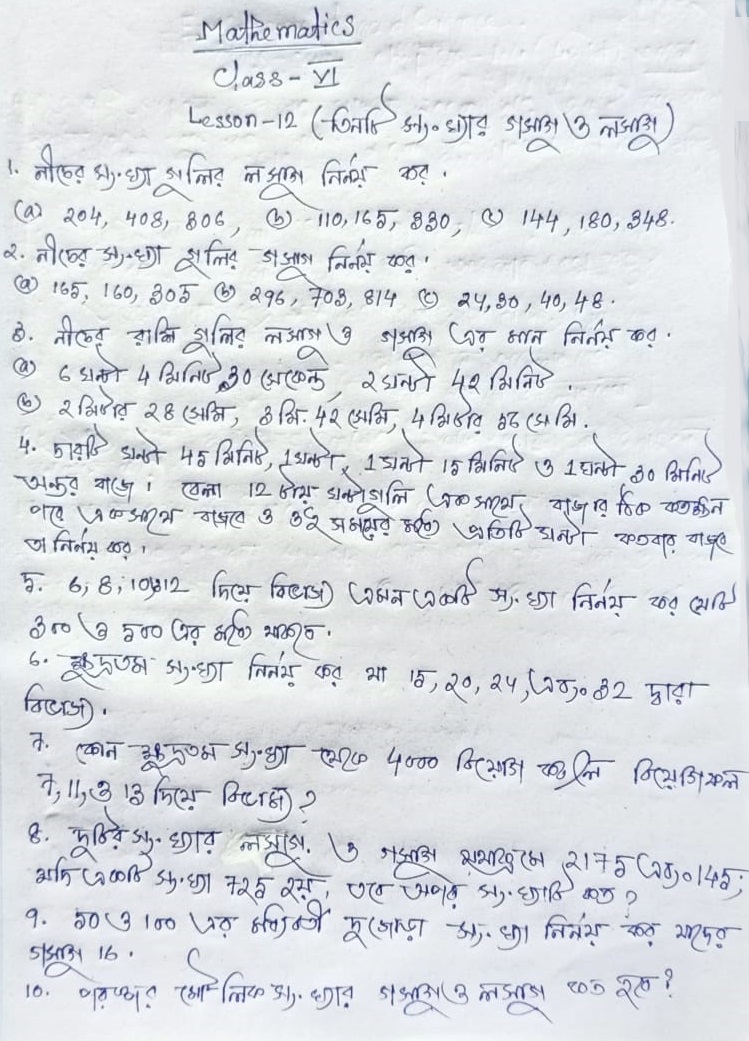 Mathematics
Class - VI
Lesson-12 (তিনটি সংখ্যার গসাগু ও লসাগু)
1. নীচের সংখ্যা গুলির লসাগু নির্নয় কর.
(a) 204, 408, 306, (b) 110, 165, 330, (c) 144, 180, 348.
2. নীচের সংখ্যা গুলির গসাগু নির্নয় কর.
(a) 165, 160, 305 (b) 296, 703, 814 (c) 24, 30, 40, 48.
3. নীচের রাশি গুলির লসাগু ও গসাগু এর মান নির্নয় কর.
(a) 6 ঘন্টা 4 মিনিট 30 সেকেন্ড, 2 ঘন্টা 42 মিনিট.
(b) 2 মিটার 28 সেমি, 3 মি. 42 সেমি, 4 মিটার 56 সেমি.
4. চারটি ঘন্টা 45 মিনিট, 1 ঘন্টা, 1 ঘন্টা 15 মিনিট ও 1 ঘন্টা 30 মিনিট
অন্তর বাজে। বেলা 12 টায় ঘন্টাগুলি একসাথে বাজার ঠিক কতক্ষন
পরে একসাথে বাজবে ও ওই সময়ের মধ্যে প্রতিটি ঘন্টা কতবার বাজবে
তা নির্নয় কর।
5. 6, 8, 10, 12 দিয়ে বিভাজ্য এমন একটি সংখ্যা নির্নয় কর যেটি
300 ও 500 এর মধ্যে থাকবে.
6. ক্ষুদ্রতম সংখ্যা নির্নয় কর যা 15, 20, 24, এবং 32 দ্বারা
বিভাজ্য.
7. কোন ক্ষুদ্রতম সংখ্যা থেকে 4000 বিয়োগ করলে বিয়োগফল
7, 11, ও 13 দিয়ে বিভাজ্য?
8. দুটির সংখ্যার লসাগু. ও গসাগু যথাক্রমে 2175 এবং 145;
যদি একটি সংখ্যা 725 হয়, তবে অপর সংখ্যাটি কত?
9. 50 ও 100 এর মধ্যবর্তী দুজোড়া সংখ্যা নির্নয় কর যাদের
গসাগু 16.
10. পরস্পর মৌলিক সংখ্যার গসাগু ও লসাগু কত হবে?